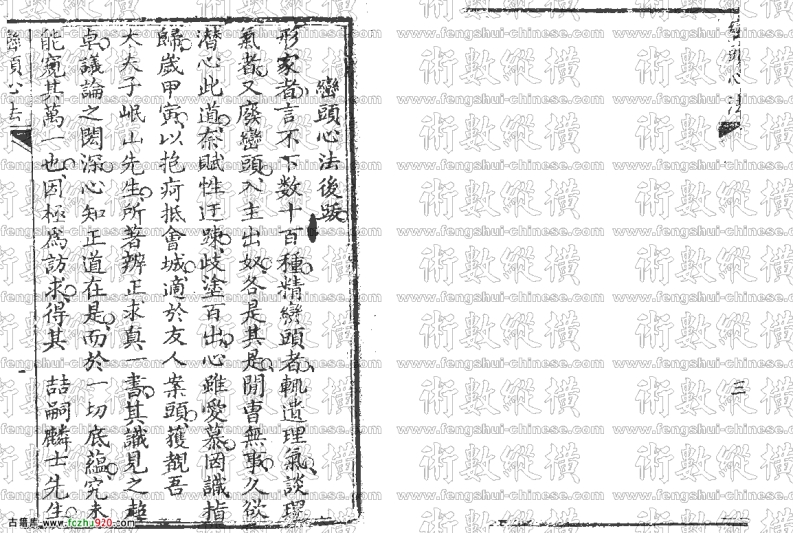 巒頭心法後跋
形家者言不下数十百種精巒頭者輒遺理氣談理
氣者又廢巒頭入主出奴各是其是閒曹無事久欲
潛心此道奈賦性迂踈歧塗百出心雖愛慕罔識指
歸歲甲寅以抱疴抵會城適於友人案頭獲觀吾
大夫子岷山先生所著辨正求真一書其識見之超
卓議論之閎深心知正道在是而於一切底蘊究未
能窺其萬一也因極為訪求得其 喆嗣麟士先生
巒頭心法
三
術數縱橫
www.fengshui-chinese.com
古籍库 www.fczhu920.com